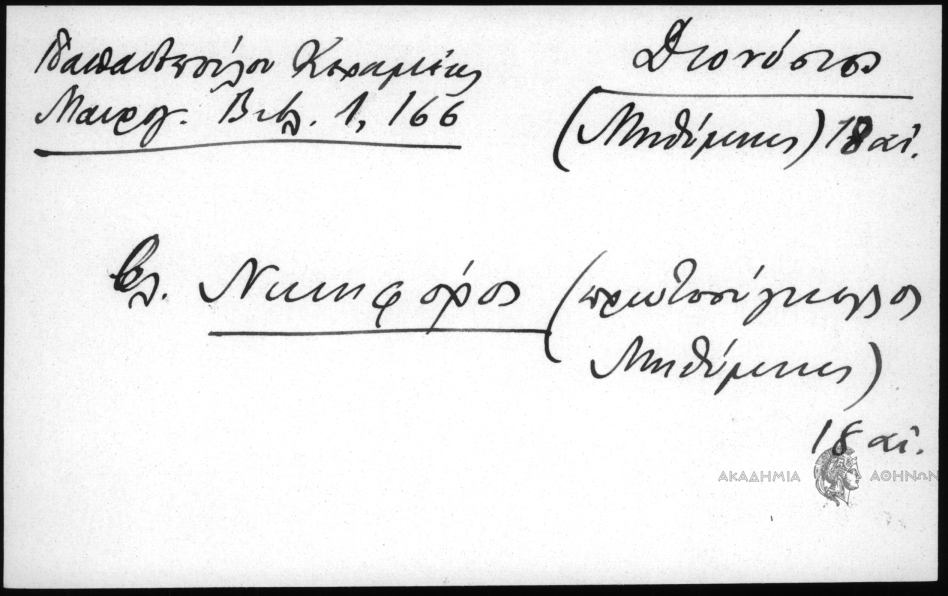 Παπαδοπούλου Κεραμέως
Μαυρογ. Βιβλ. 1, 166
Διονύσιος
(Μηθύμνης) 18 αἰ.
βλ. Νικηφόρος (πρωτοσύγκελλος
Μηθύμνης)
18 αἰ.
ΑΚΑΔΗΜΙΑ ΑΘΗΝΩΝ